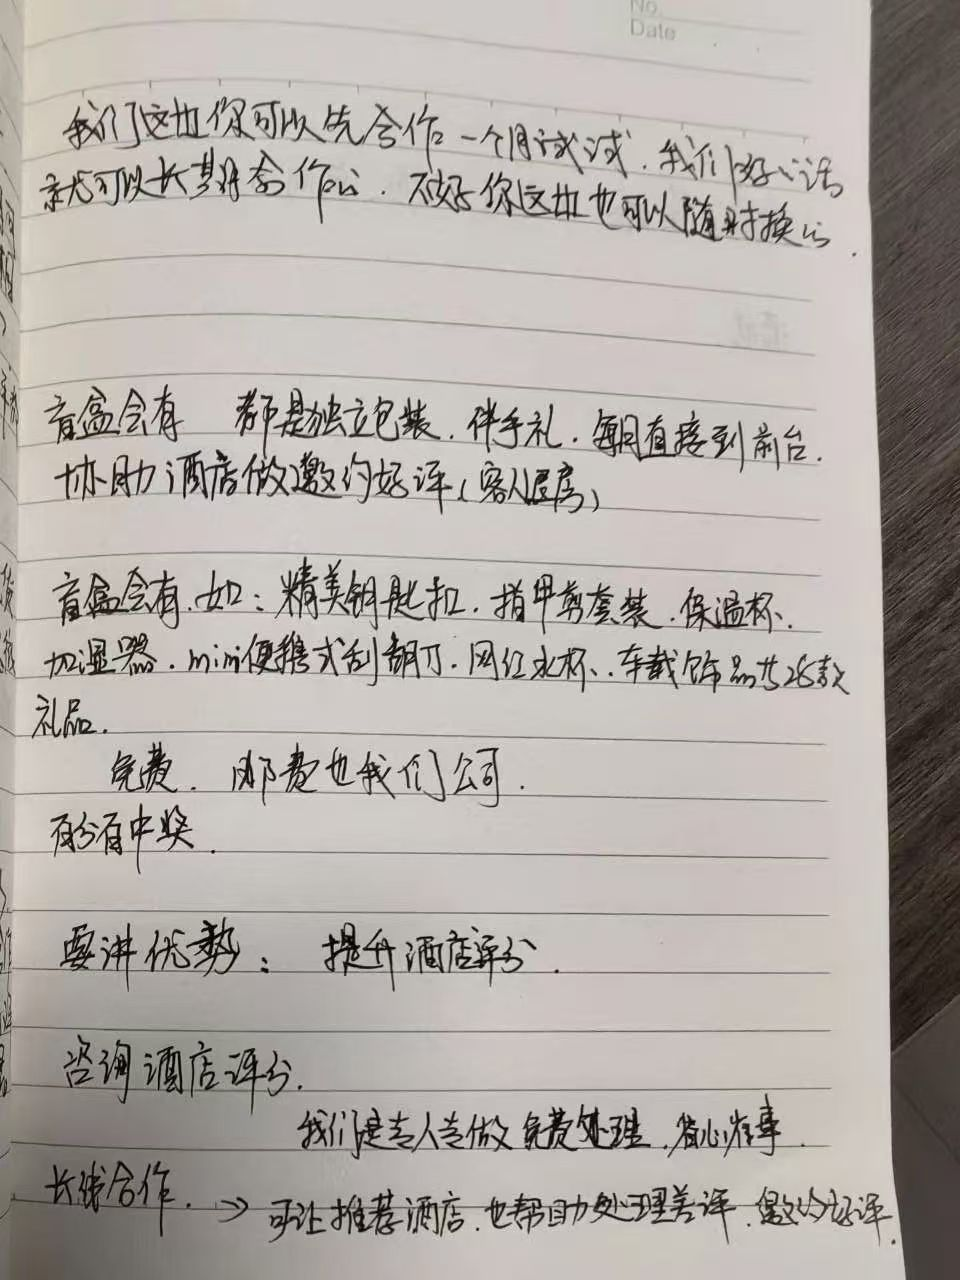 No.
Date
我们这边你可以先合作一个月试试.我们好的话
就可以长期合作的.不好你这边也可以随时换的.
盲盒会有 都是独立包装.伴手礼.每月直接到前台.
协助酒店做邀约好评(客人退房)
盲盒会有.如:精美钥匙扣.指甲剪套装.保温杯.
加湿器.mini便携式刮胡刀.网红水杯.车载饰品共26款
礼品.
免费.邮费也我们公司.
百分百中奖.
要讲优势:提升酒店评分.
咨询酒店评分.
我们是专人专做免费处理.省心省事.
长线合作.→可让推荐酒店.也帮助处理差评.邀约好评.